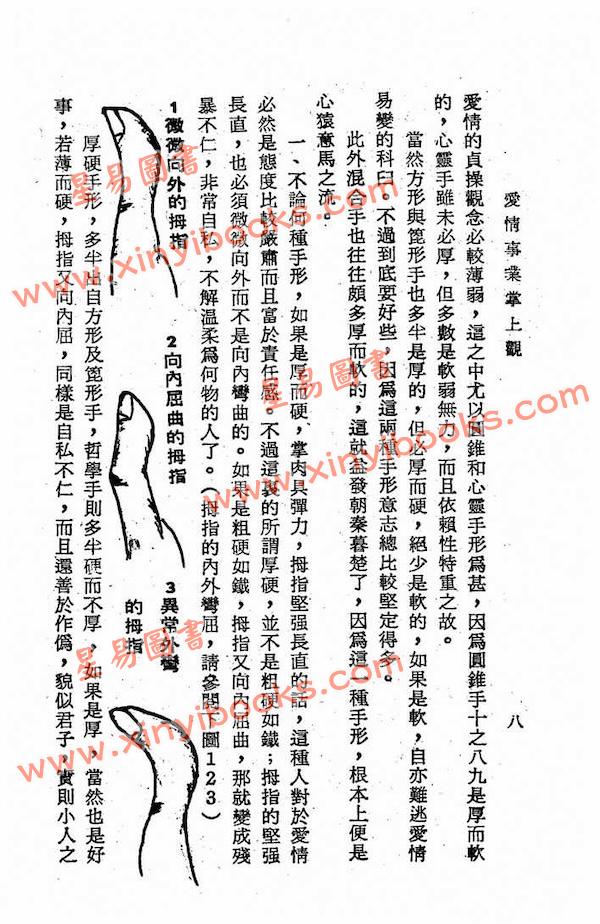 愛情事業掌上觀
八
愛情的貞操觀念必較薄弱，這之中尤以圓錐和心靈手形爲甚，因爲圓錐手十之八九是厚而軟
的，心靈手雖未必厚，但多數是軟弱無力，而且依賴性特重之故。
當然方形與篦形手也多半是厚的，但必厚而硬，絕少是軟的，如果是軟，自亦難逃愛情
易變的科臼。不過到底要好些，因爲這兩種手形意志總比較堅定得多。
此外混合手也往往頗多厚而軟的，這就益發朝秦暮楚了，因爲這一種手形，根本上便是
心猿意馬之流。
一、不論何種手形，如果是厚而硬，掌肉具彈力，拇指堅强長直的話，這種人對於愛情
必然是態度比較嚴肅而且富於責任感。不過這裏的所謂厚硬，並不是粗硬如鐵；拇指的堅强
長直，也必須微微向外而不是向內彎曲的。如果是粗硬如鐵，拇指又向內屈曲，那就變成殘
暴不仁，非常自私，不解溫柔爲何物的人了。（拇指的內外彎屈，請參閱下圖123）
1微微向外的拇指
2向內屈曲的拇指
3異常外彎
的拇指
厚硬手形，多半出自方形及篦形手，哲學手則多半硬而不厚，如果是厚，當然也是好
事，若薄而硬，拇指又向內屈，同樣是自私不仁，而且還善於作僞，貌似君子，實則小人之
星易圖書
www.xinyibooks.com
星易圖書
www.xinyibooks.com
星易圖書
www.xinyibooks.com